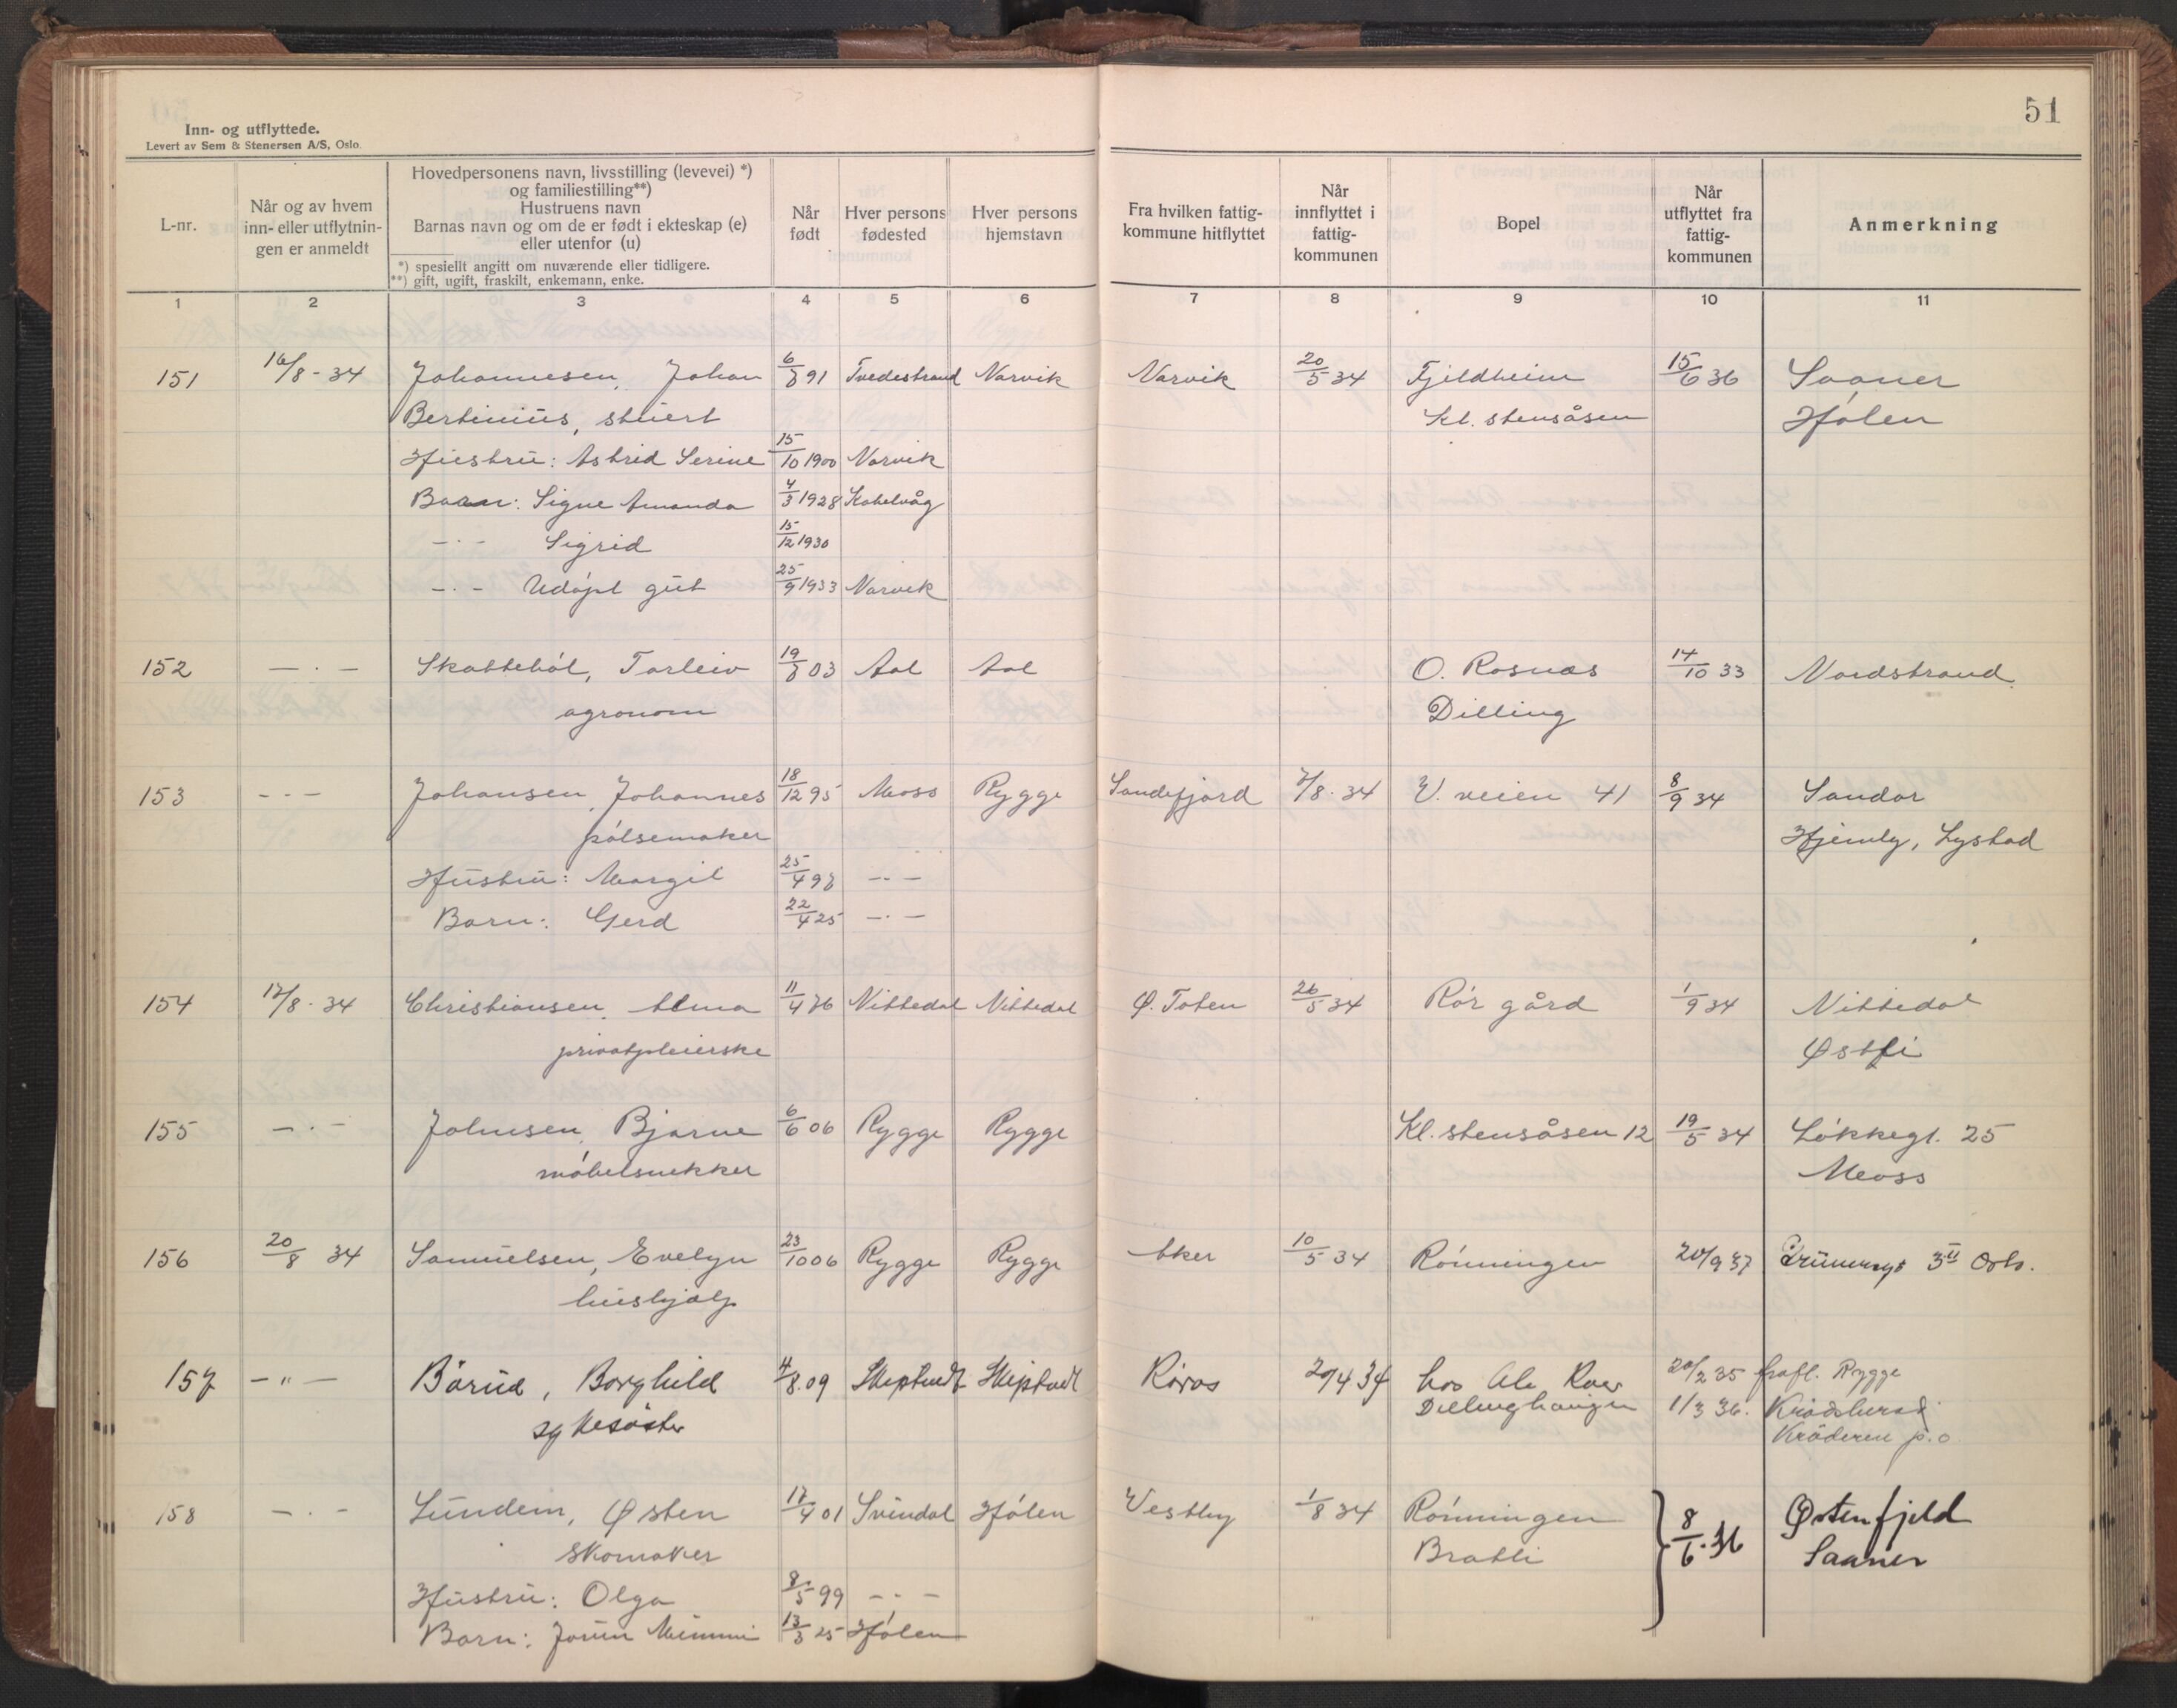 51
Inn- og utflyttede.
Levert av Sem & Stenersen A/S, Oslo.
L-nr.
Når og av hvem
inn- eller utflytnin-
gen er anmeldt
Hovedpersonens navn, livsstilling (levevei) *)
og familiestilling**)
Hustruens navn
Barnas navn og om de er født i ekteskap (e)
eller utenfor (u)
*) spesiellt angitt om nuværende eller tidligere.
**) gift, ugift, fraskilt, enkemann, enke.
Når
født
Hver persons
fødested
Hver persons
hjemstavn
Fra hvilken fattig-
kommune hitflyttet
Når
innflyttet i
fattig-
kommunen
Bopel
Når
utflyttet fra
fattig-
kommunen
Anmerkning
1 2 3 4 5 6 7 8 9 10 11
151 16/8-34 Johannesen, Johan 6/8 91 Tvedestrand Narvik Narvik 20/5 34 Fjeldheim 15/6 36 Saaner
Bertinius, stuert Kl. stensåsen Hølen
Hustru: Astrid Serine 15/10 1900 Narvik
Barn: Signe Amanda 4/3 1928 Kabelvåg
-·- Sigrid 15/12 1930
-·- Udøpt gut 25/9 1933 Narvik
152 -·- Skattebøl, Torleiv 19/8 03 Aal Aal O. Rosnæs 14/10 33 Nordstrand
agronom Dilling
153 -·- Johansen, Johannes 18/12 95 Moss Rygge Sandefjord 7/8-34 V. veien 41 8/9 34 Sandar
pølsemaker Hjemly, Lystad
Hustru: Margit 25/4 98 -·-
Barn: Gerd 22/4 25 -·-
154 17/8-34 Christiansen, Alma 11/4 76 Nittedal Nittedal Ø. Toten 26/5 34 Rør gård 1/9 34 Nittedal
privatpleierske
155 -·- Johnsen, Bjarne 6/6 06 Rygge Rygge Kl. stensåsen 12 19/5 34 Løkkegt. 25
møbelsnekker Moss
156 20/8 34 Samuelsen, Evelyn 23/10 06 Rygge Rygge Aker 10/5 34 Rønningen 20/9 37 Oslo.
hushjælp
157 -"- Bårud, Borghild 4/8.09 Skiptvedt Skiptvedt Røros 20/4 34 hos 20/2 35 frafl. Rygge
sykesøster Dillinghaugen 1/3 36. Krødsherad
Krøderen p.o
158 -·- Lundem, Østen 17/4 01 Svindal Hølen Vestby 1/8 34 Rønningen 8/6.36 Østenfjeld
skomaker Bratli Saaner
Hustru: Olga 8/5 99 -·-
Barn: Jorun Mimmi 13/3 25 Hølen